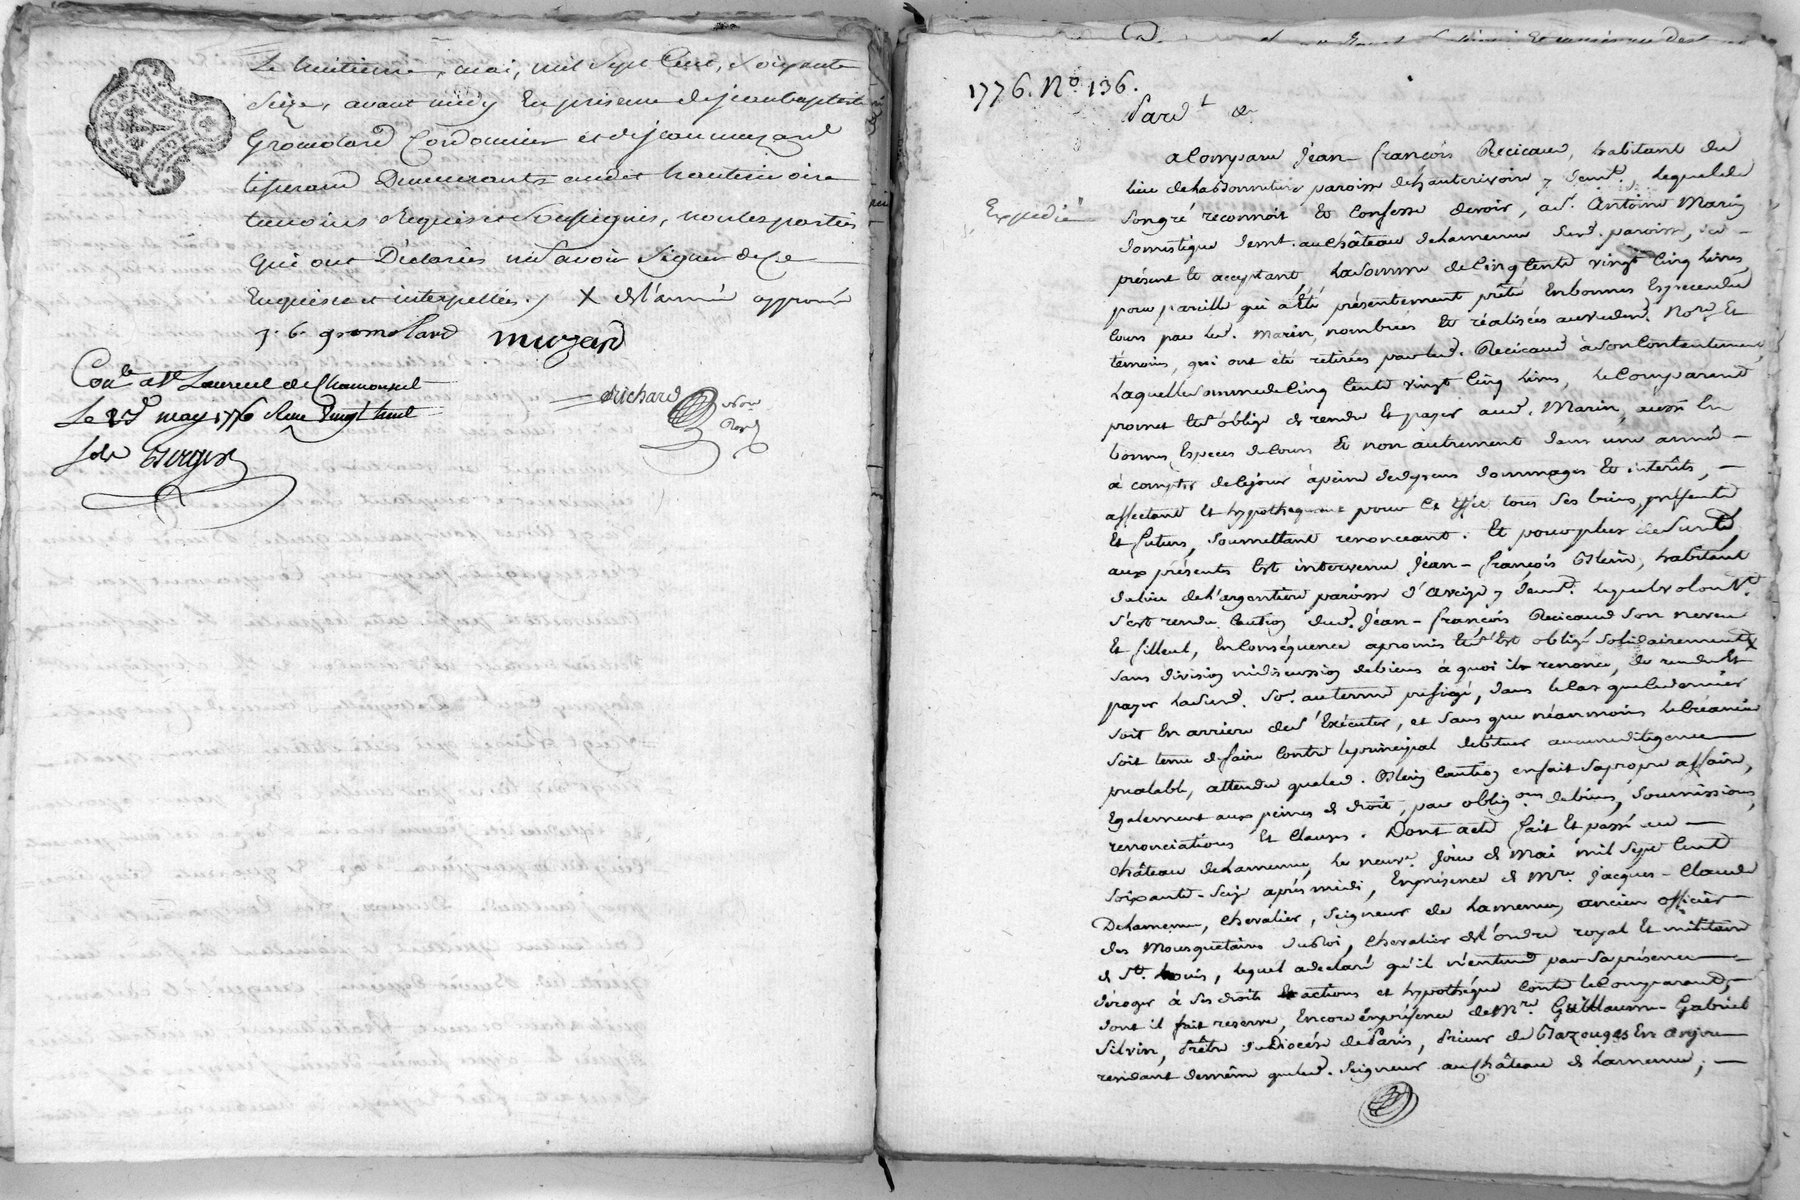 Le huitieme, mai, mil Sept Cent, Soixante
Seize, avant midy En presence de jean baptiste
Gromolard Cordonnier et de jean muzard
tisserand Demeurants audit hauterivoire
temoins Requis et Soussignés, non les parties
qui ont Déclarées ne Savoir Signer de Ce
Enquises et interpellées ./ X et l'année approuvé
j. b. gromolard muzard
Con.le a St Laurent de Chamousset
Le may 1776 Reçu vingt huit
Berger
Richard
Not.re
Royal
1776. No. 136.
Pard.t &c
Expedié
a Comparu Jean-françois Recicaud, habitant du
lieu de paroisse d'hauterivoire y demt. lequel de
Son gré reconnoit Et Confesse devoir, a Sr. Antoine Marin
domestique demt. au château de Lamenue Susd. paroisse, ici
présent Et acceptant, La Somme de Cinq Cents vingt Cinq livres
pour pareille qui a Eté présentement prêté En bonnes Espèces du
Cours par led. Marin, nombrées Et réalisées au vu dud. Not.re Et
témoins, qui ont été retirées par led. Recicaud à Son Contentement,
Laquelle Somme de Cinq Cents vingt Cinq livres, le Comparant
promet Et S'oblige de rendre Et payer aud. Marin, aussi En
bonnes Espèces de Cours Et non autrement dans une année
à compter de Ce jour à peine de dépens dommages Et interêts,
affectant Et hypothequant pour Cet Effet tous Ses biens, présents
Et futurs, Soumettant renonceant. Et pour plus de Sureté
aux présentes Est intervenu Jean-françois Blein, habitant
du lieu de L'argentiere paroisse d'aveize y demt. lequel volont.t
S'est rendu Caution dud. Jean-françois Recicaud Son neveu
Et filleul, En Conséquence a promis Et S'est obligé Solidairement
Sans division ni discussion de biens à quoi il renonce, de rendre Et
payer Lasusd. So.e au terme préfigé, dans le Cas que le dernier
Soit En arriere de S'Exécuter, et Sans que néanmoins Le Créancier
Soit tenu de faire Contre le principal debiteur aucune diligence
préalable, attendu que led. Blein Caution en fait Sa propre affaire,
Egalement aux peines de droit, par oblig.ons de biens, Soumissions,
renonciations Et Clauses. Dont acte fait Et passé au
château de Lamenue, le neuv.e jour de Mai mil Sept Cent
Soixante-Seize après midi, En présence de M.re Jacques-Claude
De Lamenue, Chevalier, Seigneur de Lamenue, ancien officier
des Mousquetaires du Roi, Chevalier de L'ordre royal Et militaire
de St. Louis, lequel a declaré qu'il n'entend par Sa présence
déroger à Ses droits Et actions et hypothéque Contre le Comparant,
dont il fait reserve, Encore En présence de M.re Guillaume-Gabriel
Silvin, Prêtre du Diocése de Paris, Prieur de Bazouges En anjou
residant de même que led. Seigneur au Château de Lamenue;